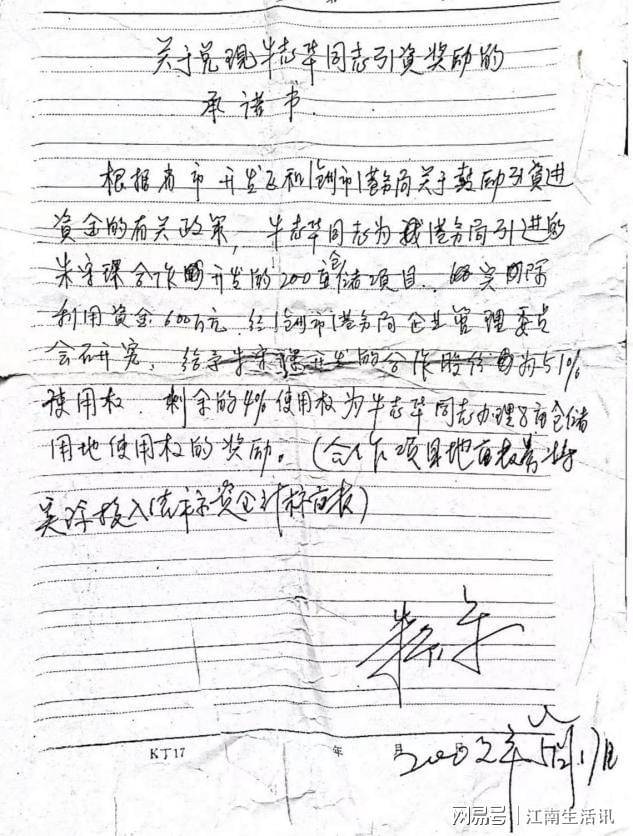 关于兑现牛志华同志引资奖励的
承诺书
根据省市开发区和沧州市港务局关于鼓励引资进
资金的有关政策,牛志华同志为我港务局引进的
朱宗琛合作开发的200亩仓储项目,实际
利用资金600万元 经沧州市港务局企业管理委员
会研究,给予朱宗琛开发的合作股份为51%
使用权.剩余的4%使用权为牛志华同志办理8亩仓储
用地使用权的奖励。(合作项目地亩按
实际投入资金计标亩数)
K丁17 年 月
2002年
网易号 | 江南生活讯